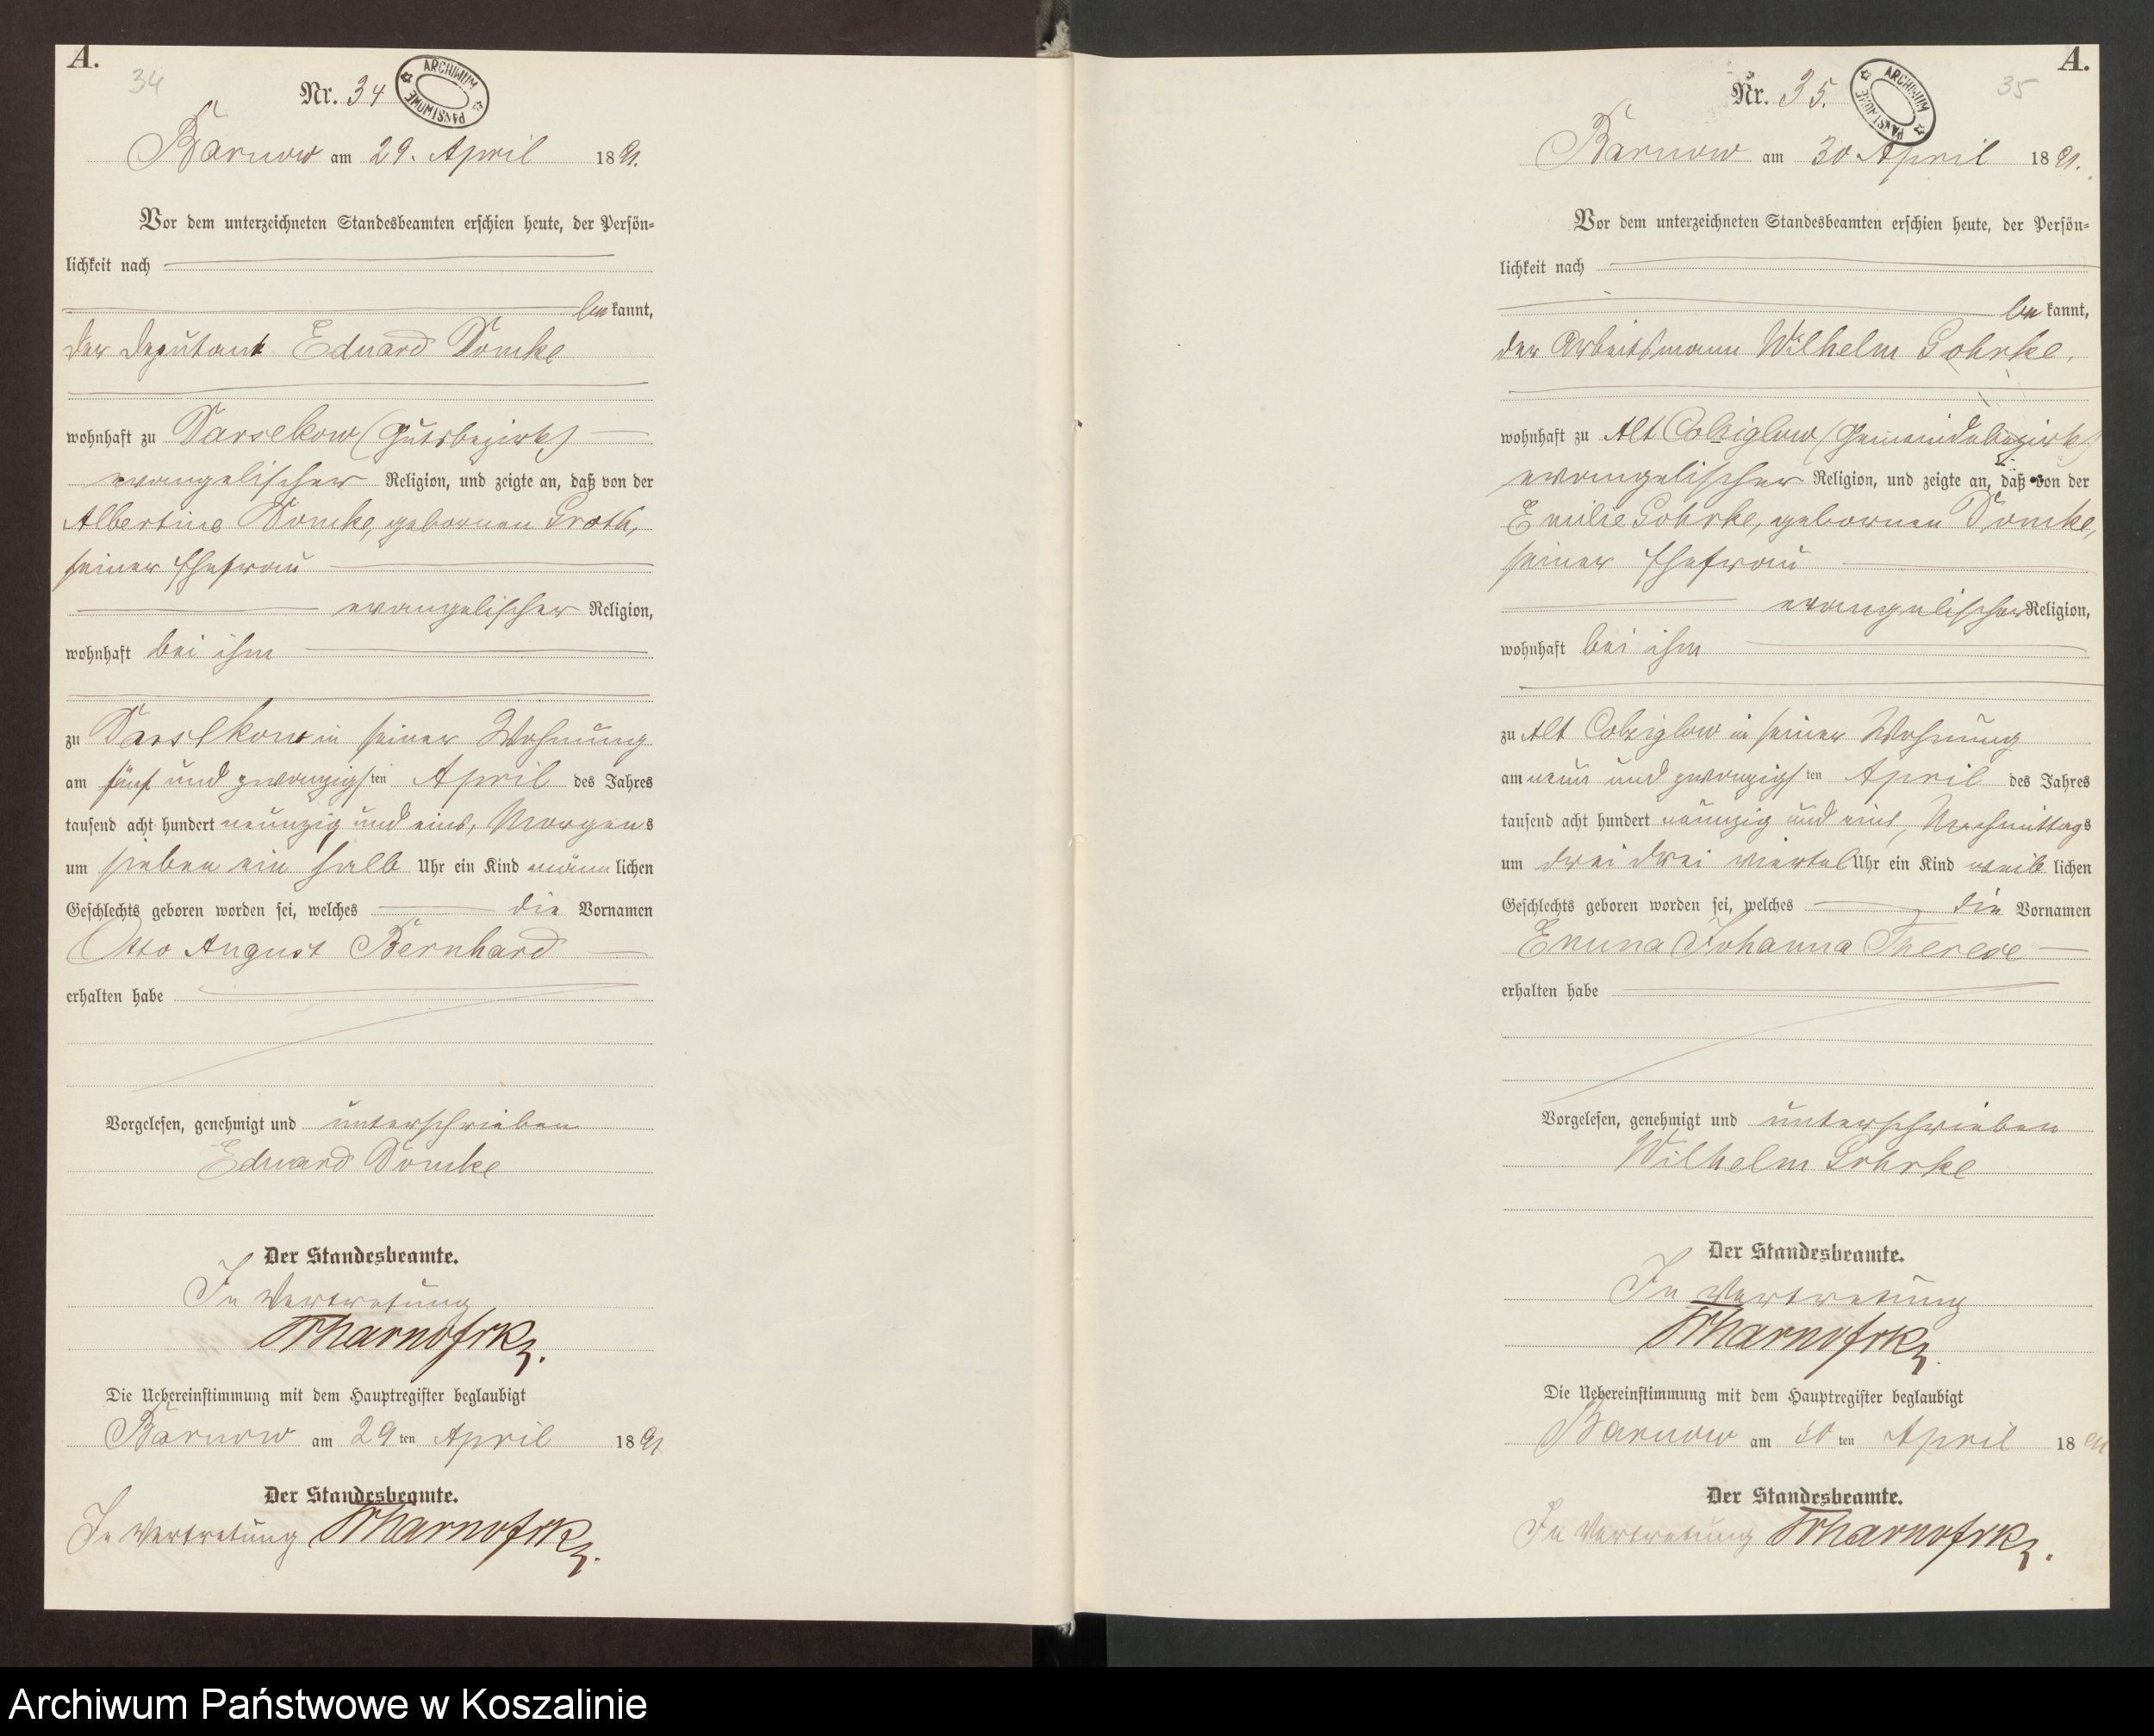 A.
34
Nr. 34
ARCHIWUM PAŃSTWOWE
Barnow am 29. April 1891.
Vor dem unterzeichneten Standesbeamten erschien heute, der Persön-
lichkeit nach
bekannt,
der Deputant Eduard Domke
wohnhaft zu Darsekow (Gutsbezirk)
evangelischer Religion, und zeigte an, daß von der
Albertine Domke, geborenen Groth,
seiner Ehefrau
evangelischer Religion,
wohnhaft bei ihm
zu Darsekow in seiner Wohnung
am fünf und zwanzigsten April des Jahres
tausend acht hundert neunzig und eins, Morgens
um sieben ein halb Uhr ein Kind männlichen
Geschlechts geboren worden sei, welches die Vornamen
Otto August Bernhard
erhalten habe
Vorgelesen, genehmigt und unterschrieben
Eduard Domke
Der Standesbeamte.
In Vertretung
Die Uebereinstimmung mit dem Hauptregister beglaubigt
Barnow am 29ten April 1891
Der Standesbeamte.
In Vertretung
A.
35
Nr. 35.
ARCHIWUM PAŃSTWOWE
Barnow am 30 April 1891.
Vor dem unterzeichneten Standesbeamten erschien heute, der Persön-
lichkeit nach
bekannt,
der Arbeitsmann Wilhelm Gohrke,
wohnhaft zu Alt Colziglow (Gemeindebezirk)
evangelischer Religion, und zeigte an, daß von der
Emilie Gohrke, geborenen Domke,
seiner Ehefrau
evangelischer Religion,
wohnhaft bei ihm
zu Alt Colziglow in seiner Wohnung
am neun und zwanzigsten April des Jahres
tausend acht hundert neunzig und eins, Nachmittags
um drei drei viertel Uhr ein Kind weiblichen
Geschlechts geboren worden sei, welches die Vornamen
Emma Johanna Therese
erhalten habe
Vorgelesen, genehmigt und unterschrieben
Wilhelm Gohrke
Der Standesbeamte.
In Vertretung
Die Uebereinstimmung mit dem Hauptregister beglaubigt
Barnow am 30ten April 1891
Der Standesbeamte.
In Vertretung
Archiwum Państwowe w Koszalinie